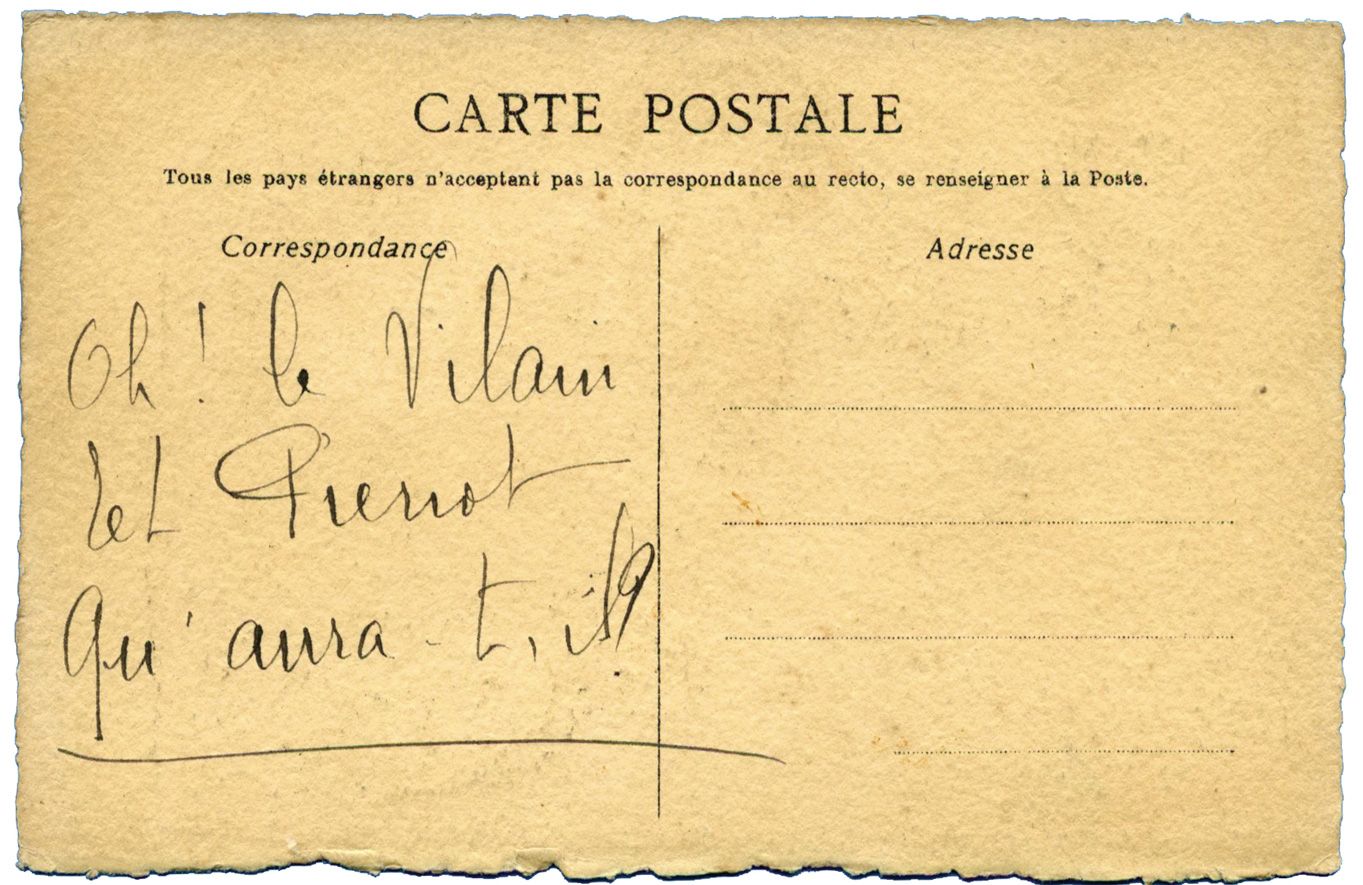 CARTE POSTALE
Tous les pays étrangers n'acceptent pas la correspondance au recto, se renseigner à la Poste.
Correspondance
Adresse
Oh! le Vilain
et Pierrot
Qu'aura-t-il?